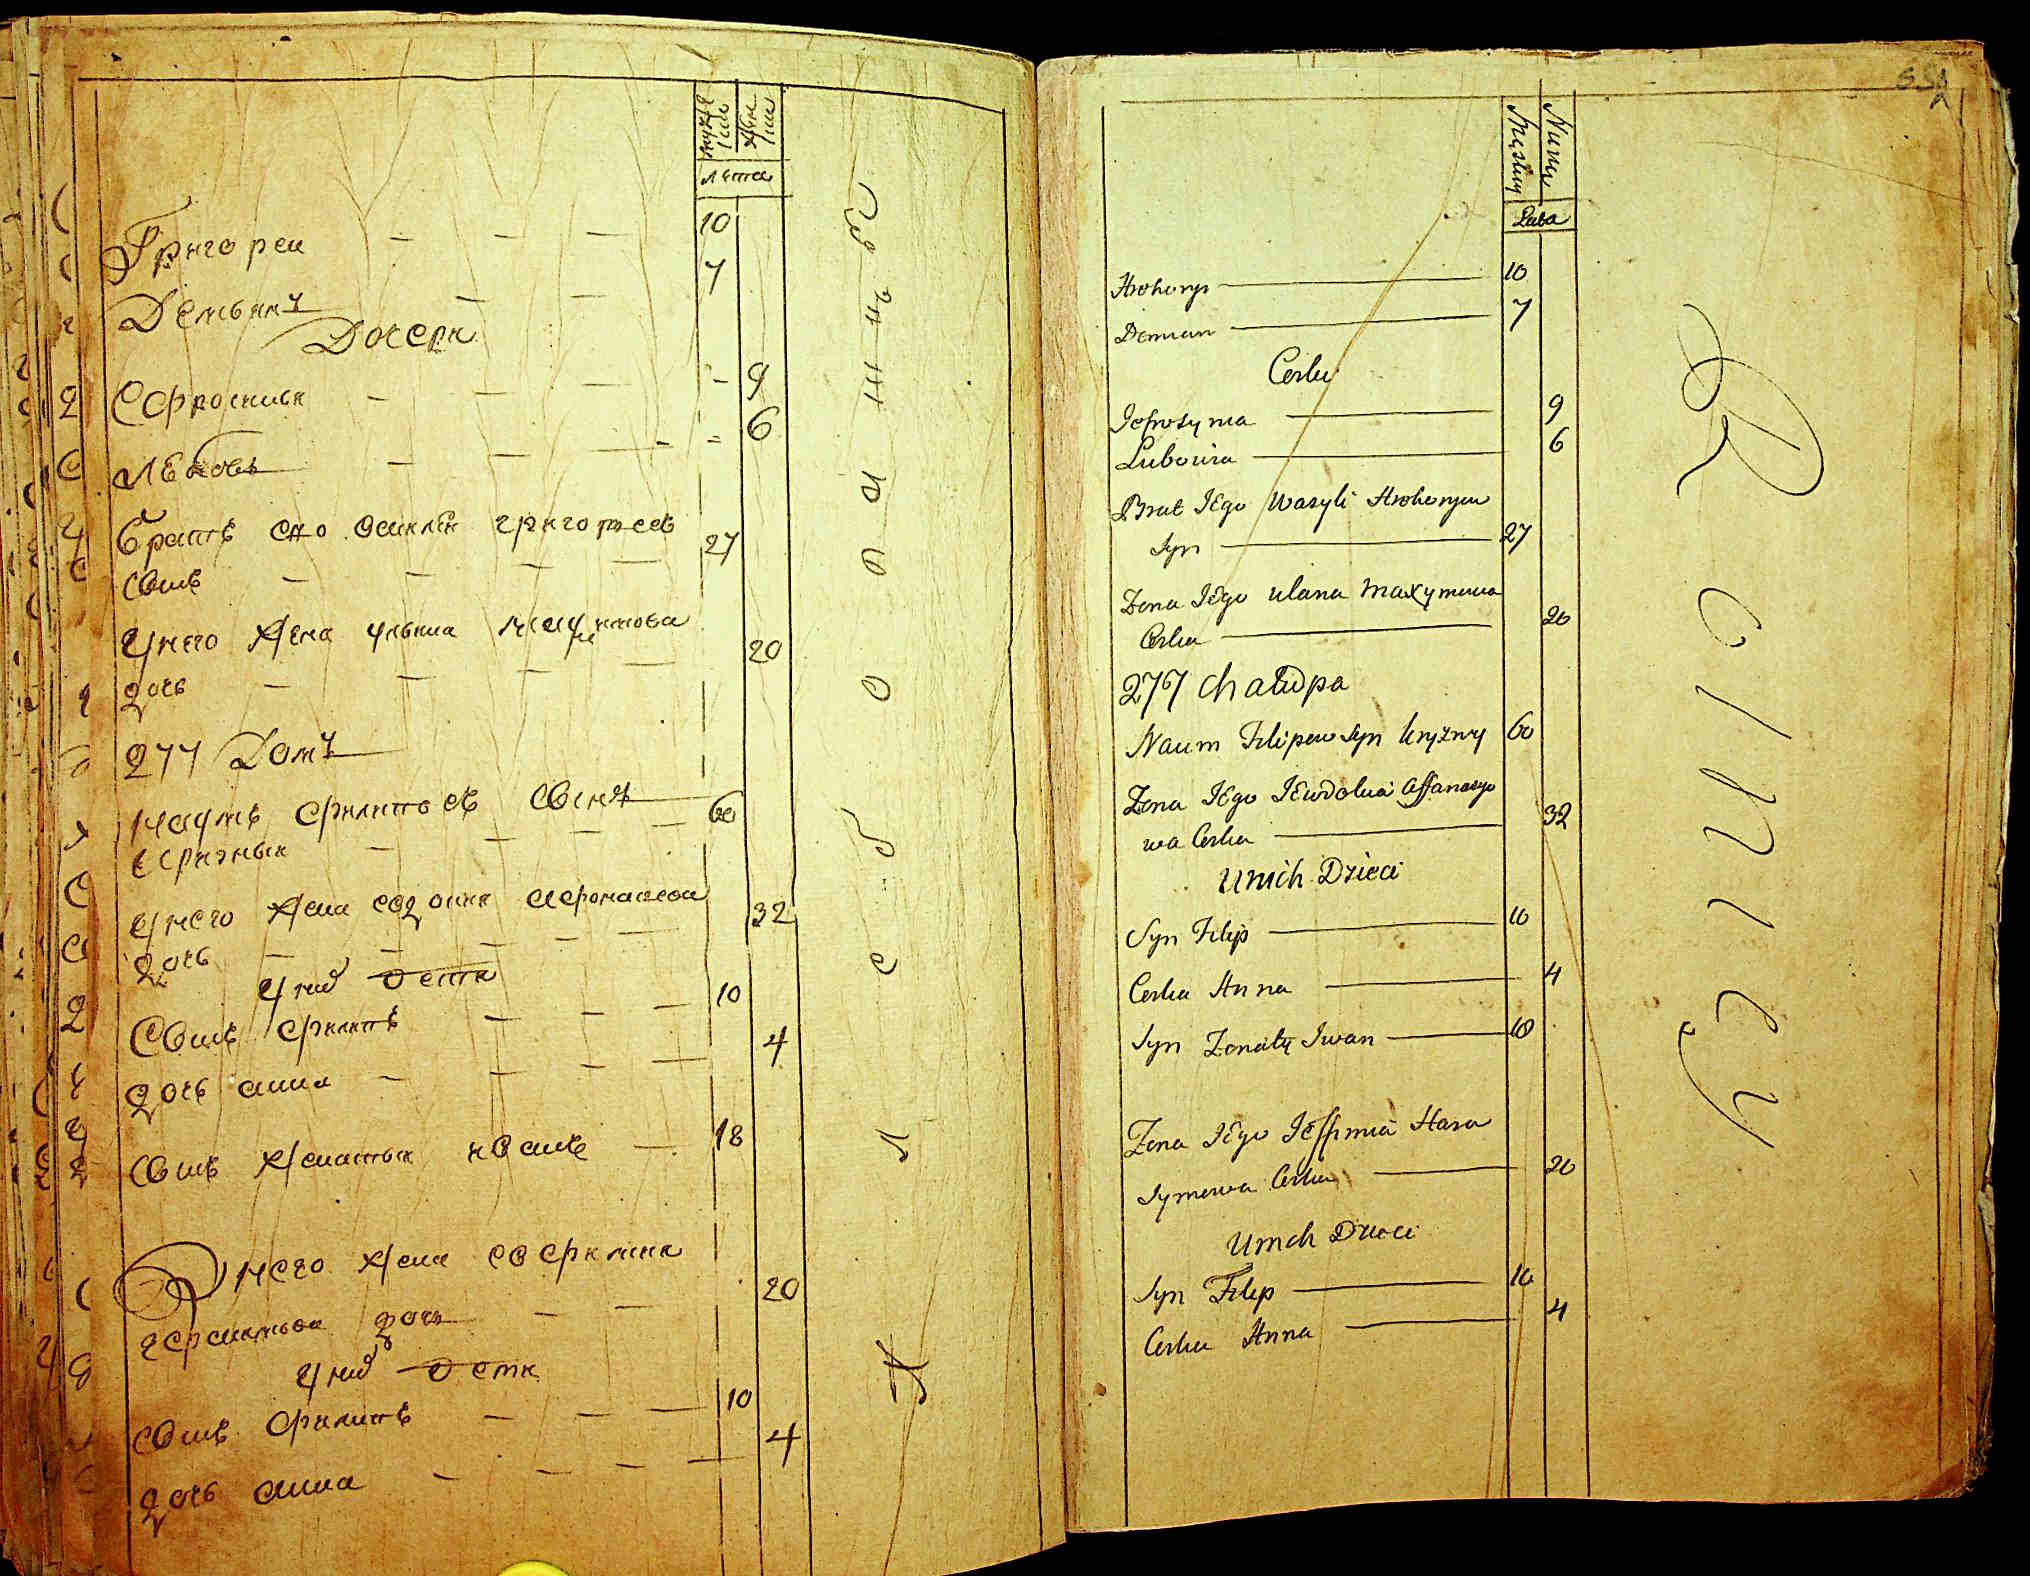 мужеска
женска
лета
Григореи 10
Демьянъ 7
Дочери
Ефросинья 9
Любовь 6
братъ его василеи григорьевъ 27
сынъ
у него жена ульяна максимова 20
дочь
277 Домъ
наумъ филипьевъ сынъ 60
у него жена евдокия афонасева 32
дочь
у них дети
сынъ филипъ 10
дочь анна 4
сынъ женатыи иванъ 18
У него жена
герасимова дочь 20
у них дети
сынъ филипъ 10
дочь анна 4
Męskiey
Lata
Hrehory 10
Demian 7
Corki
Jefrosynia 9
Lubowia 6
Brat Iego Wasyli Hrehoryew
Syn 27
Zona Iego Ulana Maxymowa
Corka 20
277 Chałupa
Naum Filipow Syn 60
Zona Iego Iewdokia Affanasyo
wa Corka 32
U nich Dzieci
Syn Filip 10
Corka Anna 4
Syn Zonaty Iwan 18
Zona Iego Ieffimia Hara
symowa Corka 20
U nich Dzieci
Syn Filip 10
Corka Anna 4
Rolnicy